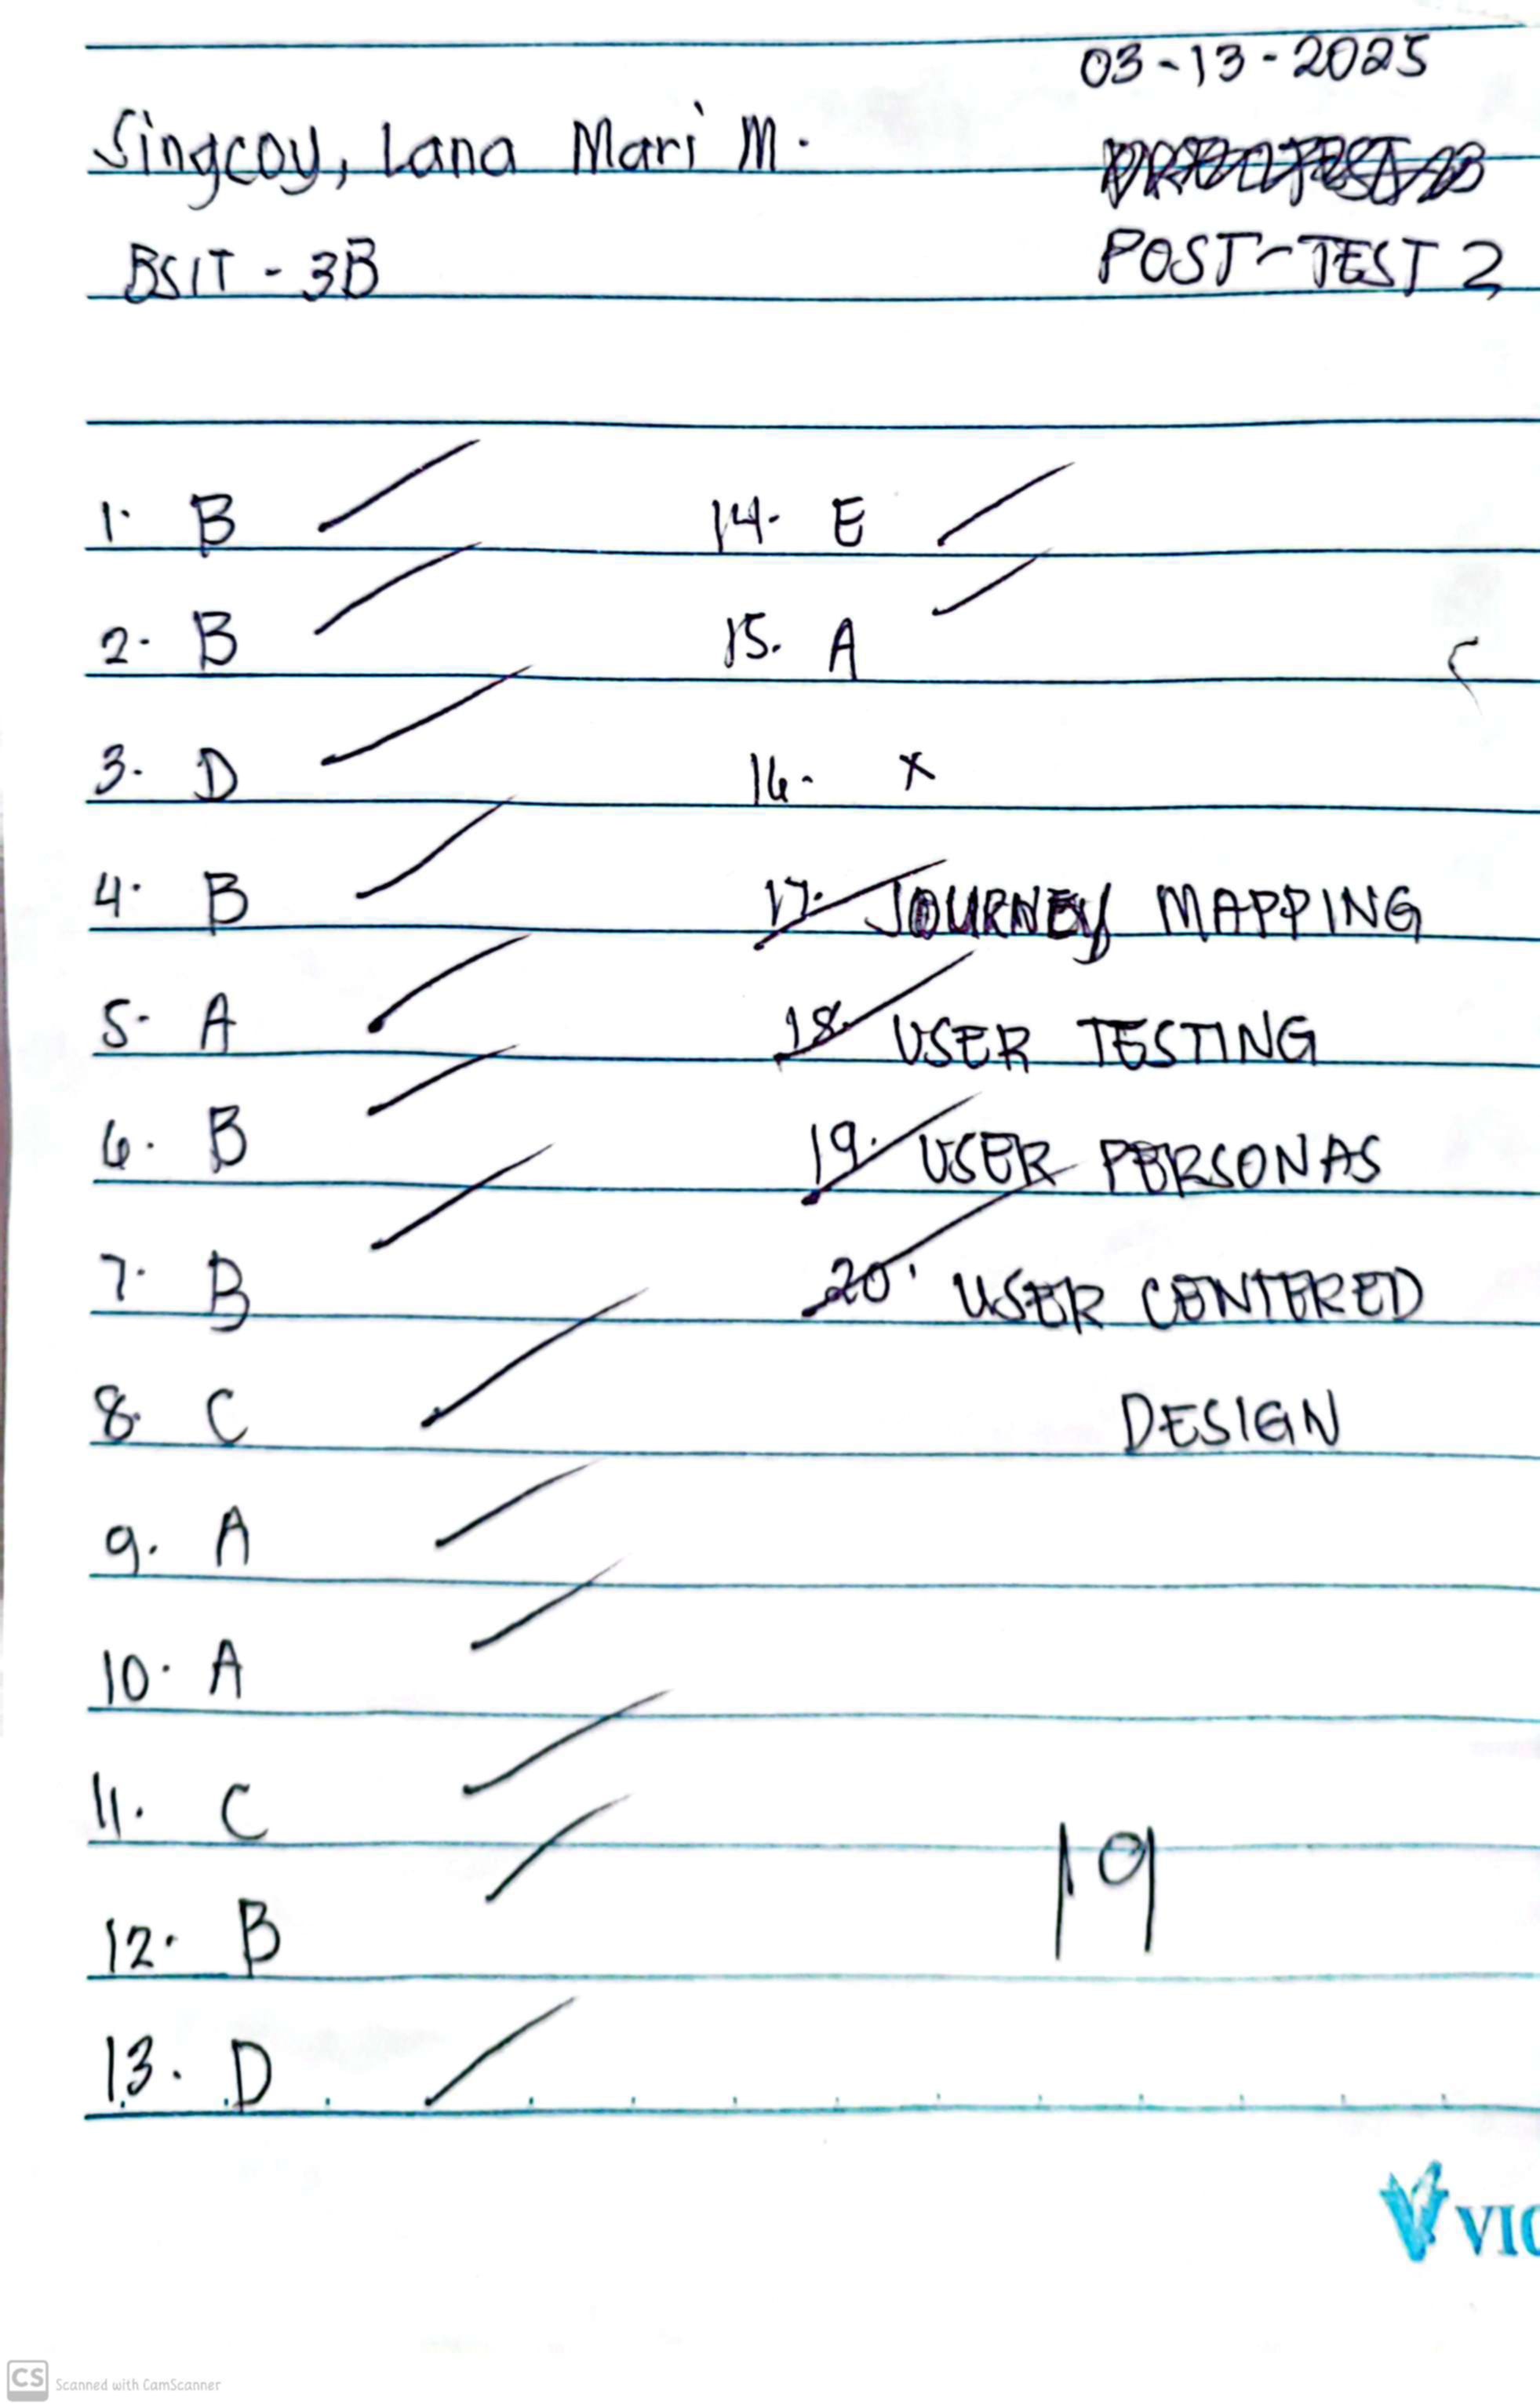 03-13-2025
Singcoy, Lana Mari M.
BSIT - 3B
POST-TEST 2
1. B
2. B
3. D
4. B
5. A
6. B
7. B
8. C
9. A
10. A
11. C
12. B
13. D
14. E
15. A
16. x
17. JOURNEY MAPPING
18. USER TESTING
19. USER PERSONAS
20. USER CENTERED
DESIGN
19
VIC
CS Scanned with CamScanner